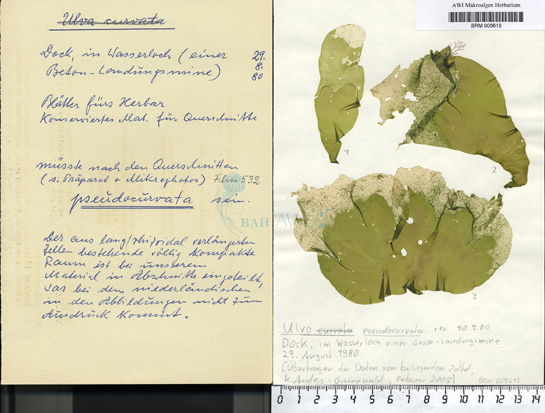 Ulva curvata
Dock, in Wasserloch (einer
Beton-Landungsmine)
29.
8.
80
Blätter fürs Herbar
Konserviertes Mat. für Querschnitte
müsste nach den Querschnitten
(s. Präparat + Mikrophotos) Film 532
pseudocurvata sein.
Der aus lang/rhizoidal verlängerten
Zellen bestehende völlig kompakte
Raum ist bei unserem
Material in Abschnitte eingeteilt,
was bei dem niederländischen
in den Abbildungen nicht zum
Ausdruck kommt.
BAH AWI
AWI Makroalgen Herbarium
BRM 005615
1
2
3
Ulva curvata pseudocurvata rev. 10.9.80
Dock, im Wasserloch einer Beton-Landungsmine
29. August 1980
(Übertragen der Daten vom beiliegenden Zettel,
Februar 2005)
BRM 005615
0 1 2 3 4 5 6 7 8 9 10 11 12 13 14